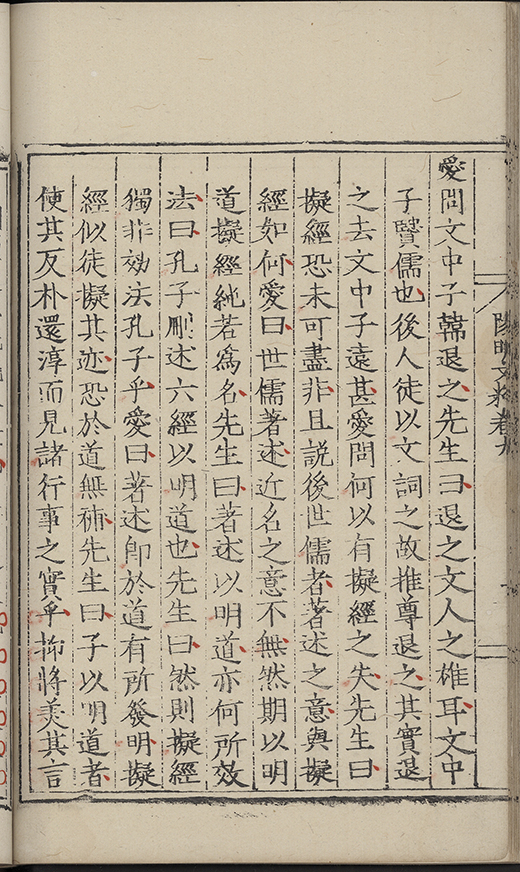 愛問文中子韓退之先生曰退之文人之雄耳文中
子賢儒也後人徒以文詞之故推尊退之其實退
之去文中子遠甚愛問何以有擬經之失先生曰
擬經恐未可盡非且說後世儒者著述之意與擬
經如何愛曰世儒著述近名之意不無然期以明
道擬經純若爲名先生曰著述以明道亦何所效
法曰孔子刪述六經以明道也先生曰然則擬經
獨非効法孔子乎愛曰著述即於道有所發明擬
經似徒擬其迹恐於道無補先生曰子以明道者
使其反朴還淳而見諸行事之實乎抑將美其言
陽明文粹卷九